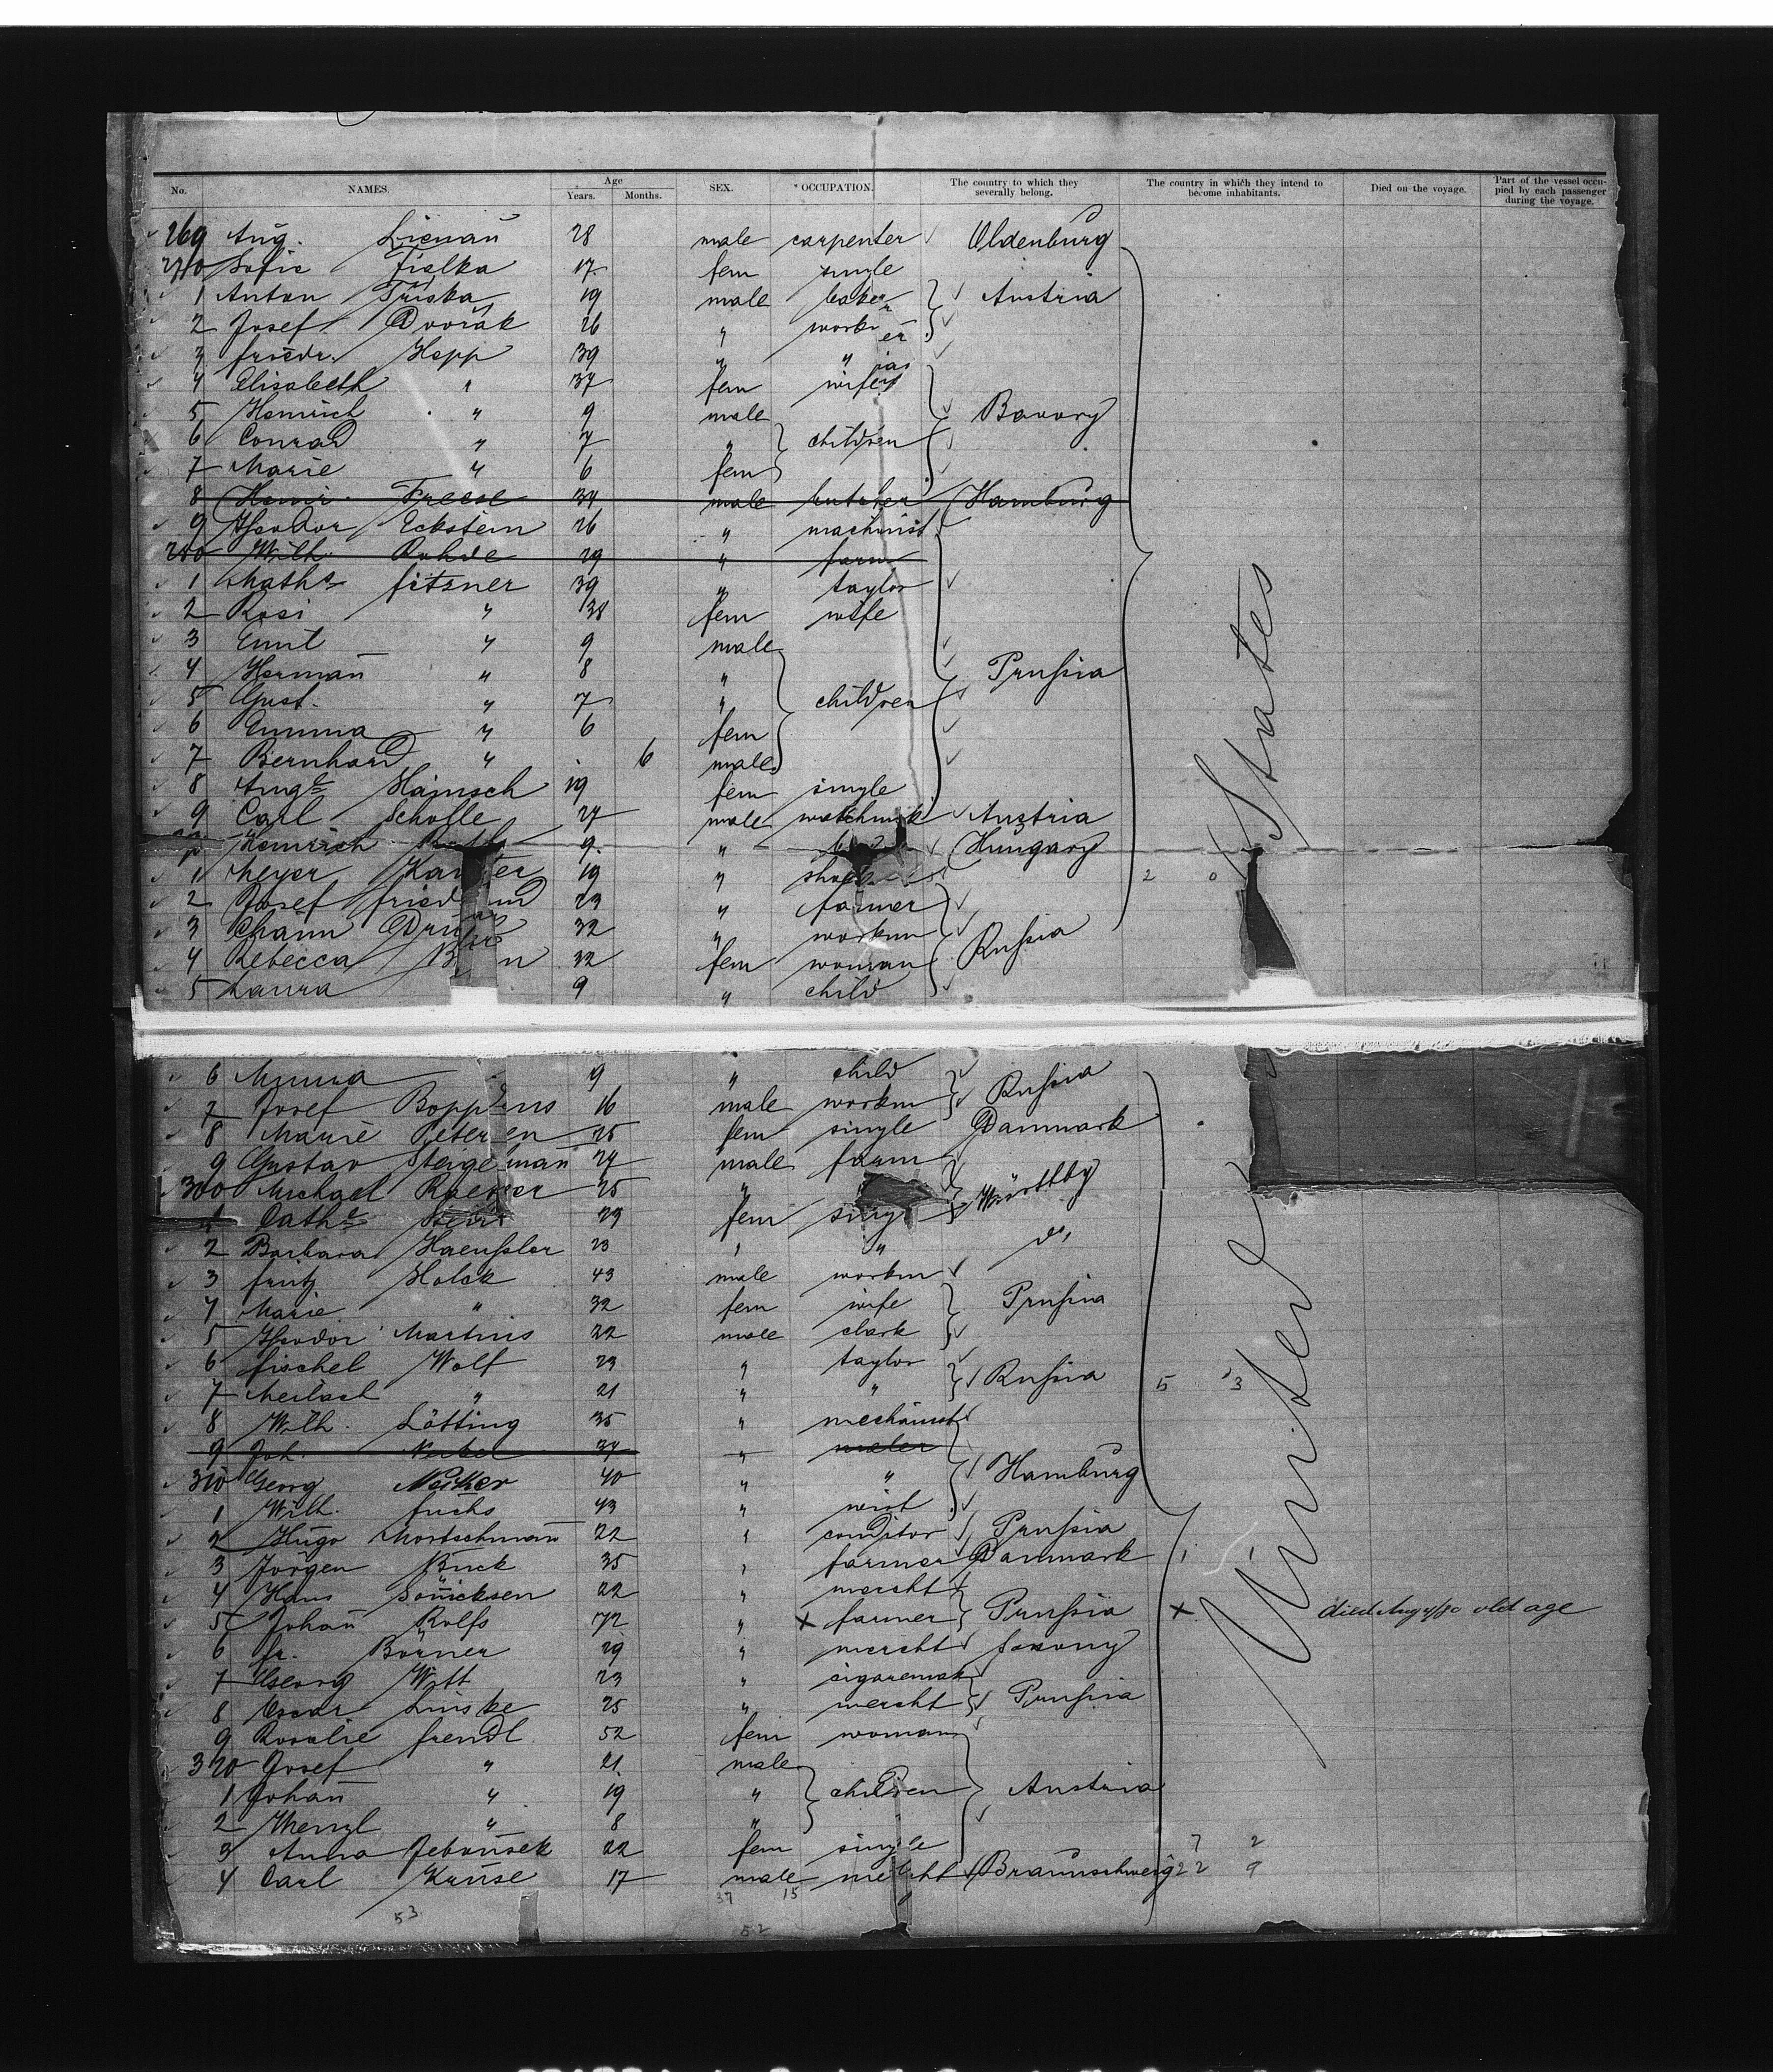 No. NAMES. Age Years. Months. SEX. OCCUPATION. The country to which they severally belong. The country in which they intend to become inhabitants. Died on the voyage. Part of the vessel occupied by each passenger during the voyage.
269 Aug. Lienau 28 male carpenter Oldenburg
270 Sofie Fialka 17 fem single
1 Anton Třiska 19 male baker Austria
2 Josef Dvořák 26 " workn
3 friedr. Hepp 39 " "
4 Elisabeth " 37 fem wife
5 Heinrich " 9 male Bavory
6 Conrad " 7 " children
7 Marie " 6 fem
8 Heinr. Freese 34 male butcher Hamburg
9 Theodor Eckstein 26 " machinist
280 Wilh. Rohde 29 " farm
1 Maths fitzner 39 " taylor
2 Rosi " 38 fem wife
3 Emil " 9 male
4 Hermañ " 8 " Prussia
5 Gust. " 7 " children
6 Emma " 6 fem
7 Bernhard " 6 male
8 Auge Hainsch 19 fem single
9 Carl Scholle 27 male watchmk Austria
Heinrich 9. " Hungary
1 Meyer 19 "
2 Josef 23 " farmer
3 Chaim 32 " workm Russia
4 Rebecca 32 fem woman
5 Laura 9 " child
6 Minna 9 " child
7 Josef Boppens 16 male workm Russia
8 Marie Petersen 25 fem single Danmark
9 Gustav Steigemañ 27 male farm
300 Michael 25 " Württbg
1 Cathe 23 fem singl
2 Barbara Haenssler 23 " " do,
3 fritz Holck 43 male workm
4 Marie " 32 fem wife Prussia
5 Theodor Martins 22 male clark
6 fischel Wolf 23 " taylor
7 " 21 " " Russia 5 3
8 Wilh. Lötting 35 " mechanist
9 Joh. 34 " maler
310 Georg Neiker 40 " " Hamburg
1 Wilh. fuchs 43 " wirt
2 Hugo Mortschmañ 22 " conditor Prussia
3 Jörgen Buck 35 " farmer Danmark 1 1
4 Hans Söñicksen 22 " mercht
5 Johañ Rolfs 72 " x farmer Prussia x died Aug old age
6 fr. Börner 29 " mercht Saxony
7 Georg Witt 23 " cigaremak
8 Oscar Linske 25 " mercht Prussia
9 Rosalie frendl 52 fem woman
320 Josef " 21 male
1 Johañ " 19 " children Austria
2 Wenzl " 8 "
3 Anna 22 fem single 7 2
4 Carl Kruse 17 male Braunschweig 22 9
37 15
53
52
United States